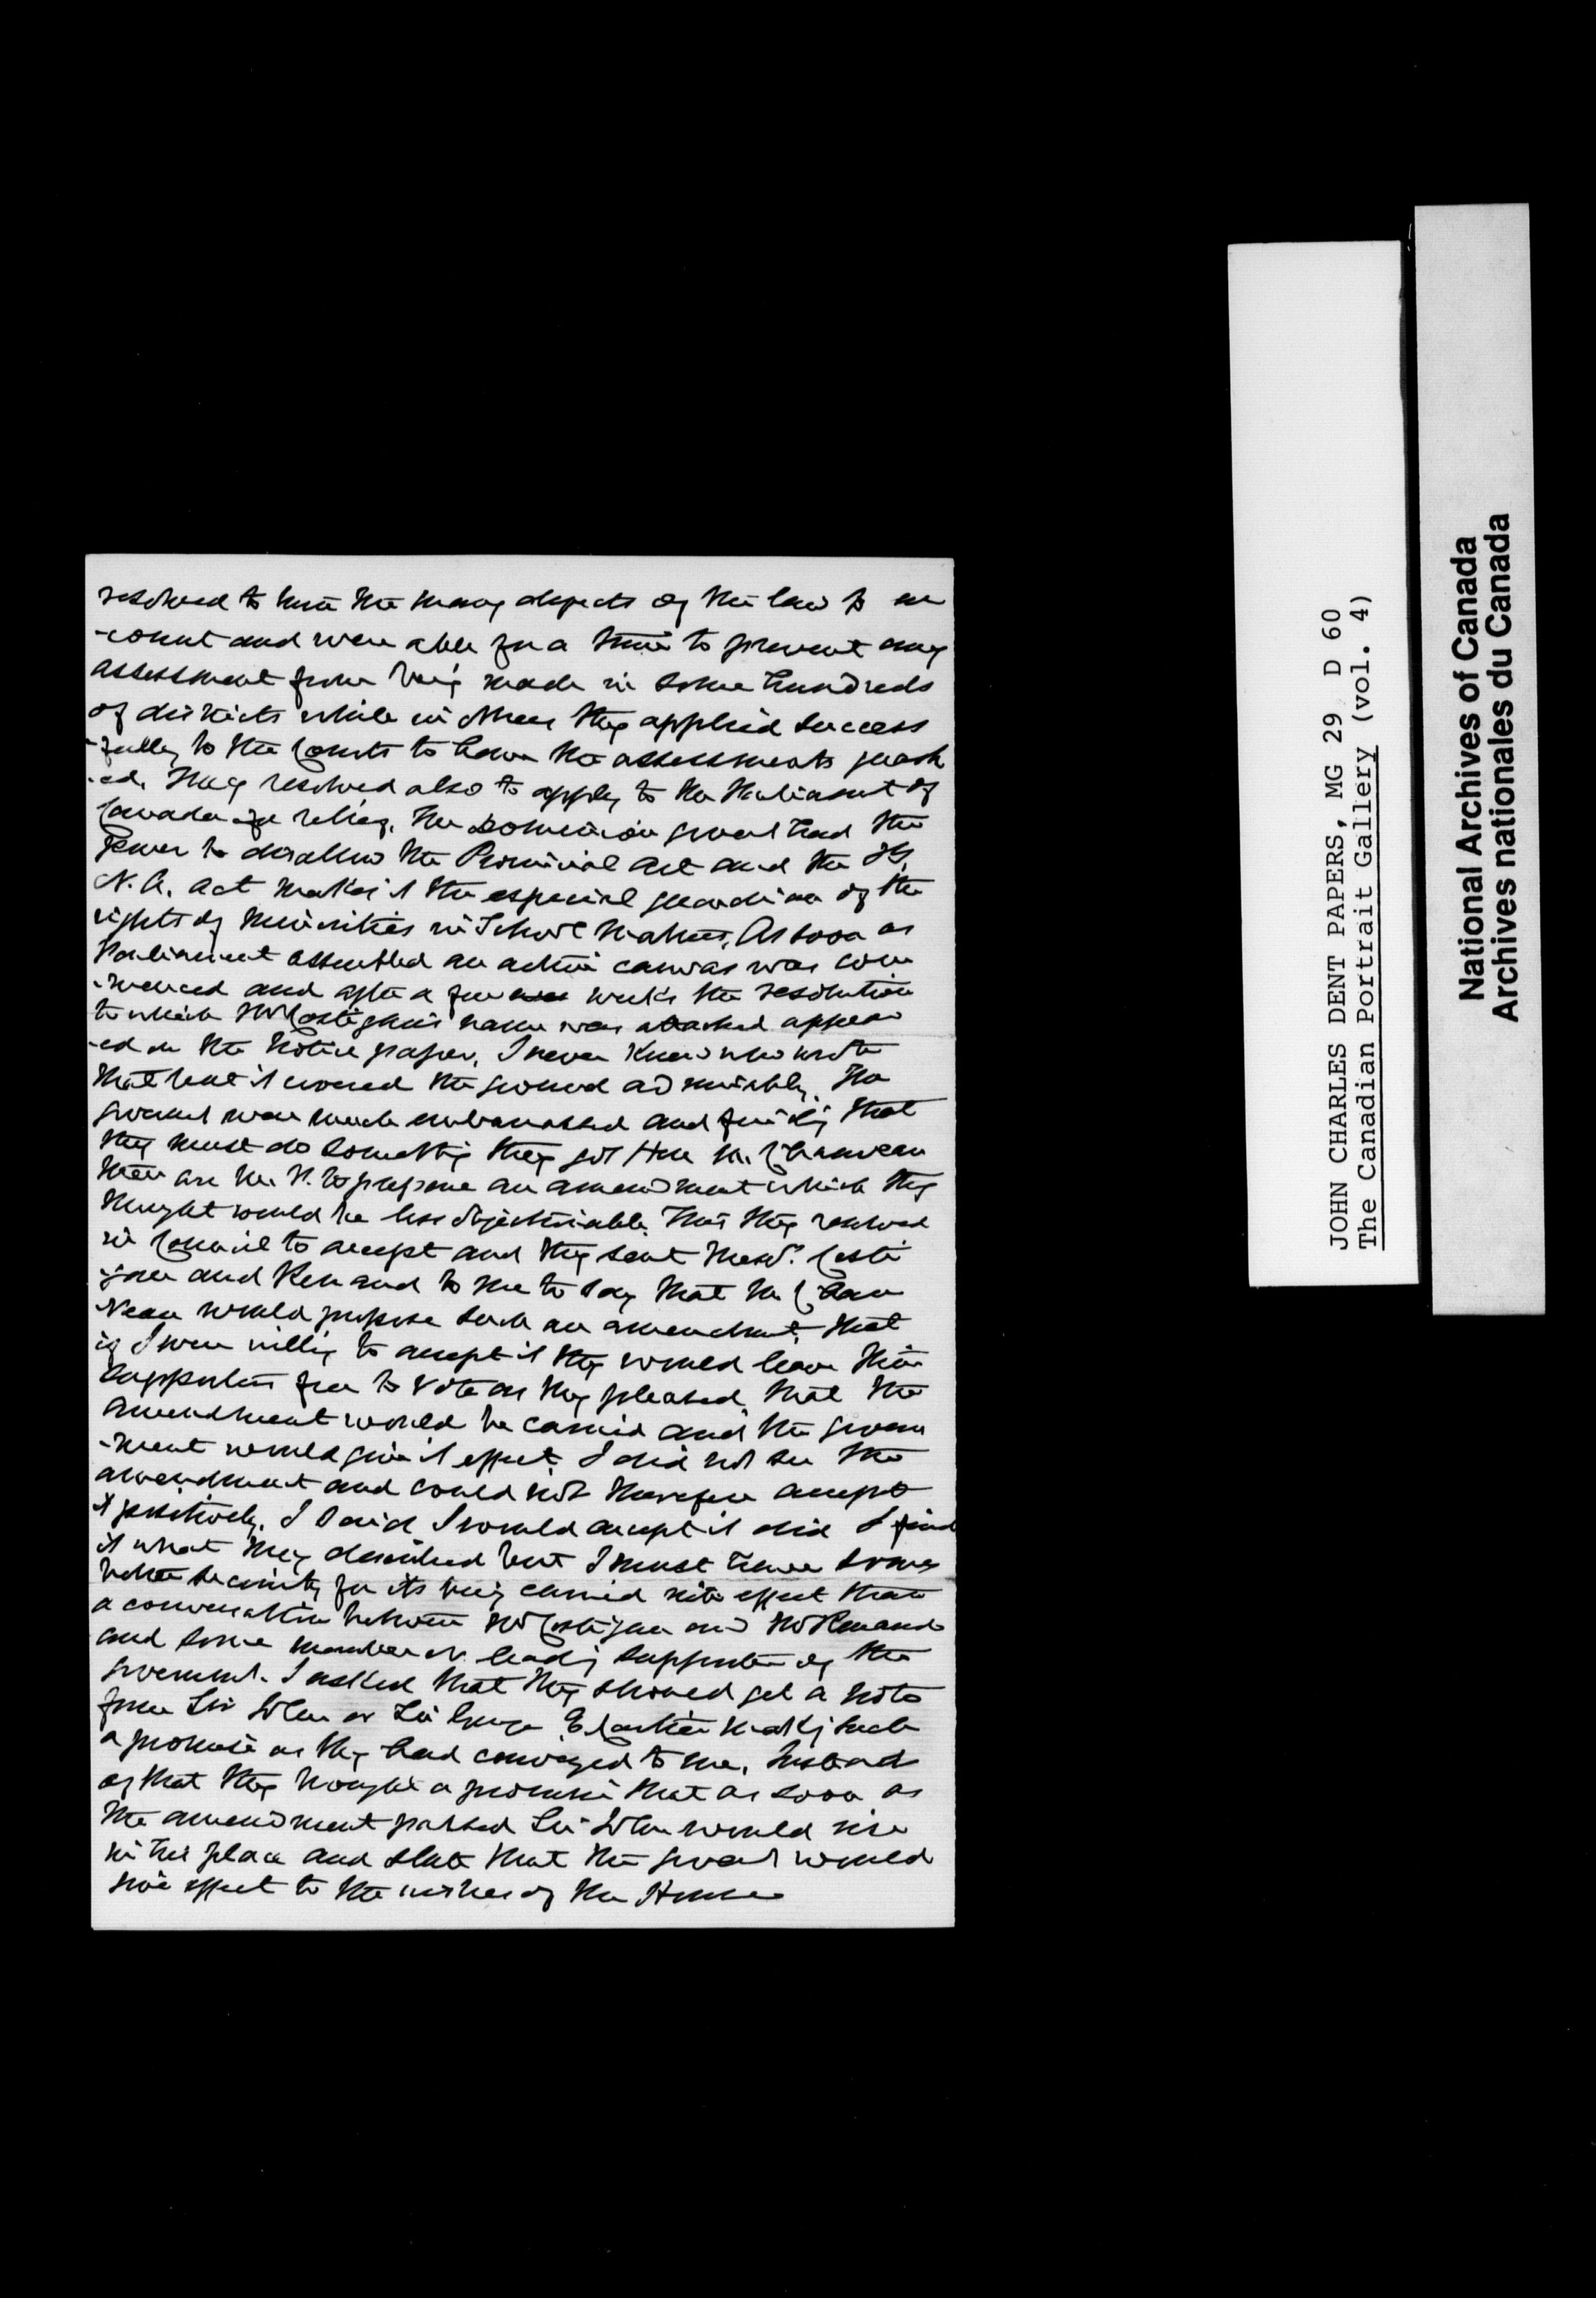 resolved to turn the many defects of the law to ac
-count and were able for a time to prevent any
assessment from being made in some hundreds
of districts while in others they applied success
-fully to the Courts to have the assessments quash
-ed. They resolved also to apply to the Parliament of
Canada for relief. The Dominion govmt had the
Power to disallow the Provincial act and the B.
N. A. act makes it the especial guardian of the
rights of Minorities in School matters. As soon as
Parliament assembled an active canvas was com
-menced and after a few weeks the resolution
to which Mr Costigan's name was attached appear
-ed on the Notice paper. I never knew who wrote
that but it covered the ground admirably. The
govmt were much embarrassed and finding that
they must do something they got Hon Mr. Chauveau
then an M. P. to prepare an amendment which they
thought would be less objectionable. This they resolved
in Council to accept and they sent Messrs. Costi
-gan and Renaud to me to say that Mr Chau
-veau would propose such an amendment, that
if I were willing to accept it they would leave their
supporters free to vote as they pleased, that the
amendment would be carried and the govern
-ment would give it effect. I did not see the
amendment and could not therefore accept
it positively. I said I would accept it did I find
it what they described but I must have some
better security for its being carried into effect than
a conversation between Mr Costigan and Mr Renaud
and some member or leading supporter of the
government. I asked that they should get a note
from Sir John or Sir George E Cartier making such
a promise as they had conveyed to me. Instead
of that they brought a promise that as soon as
the amendment passed Sir John would rise
in his place and state that the govmt would
give effect to the wishes of the House
JOHN CHARLES DENT PAPERS, MG 29, D 60
The Canadian Portrait Gallery (vol. 4)
National Archives of Canada
Archives nationales du Canada